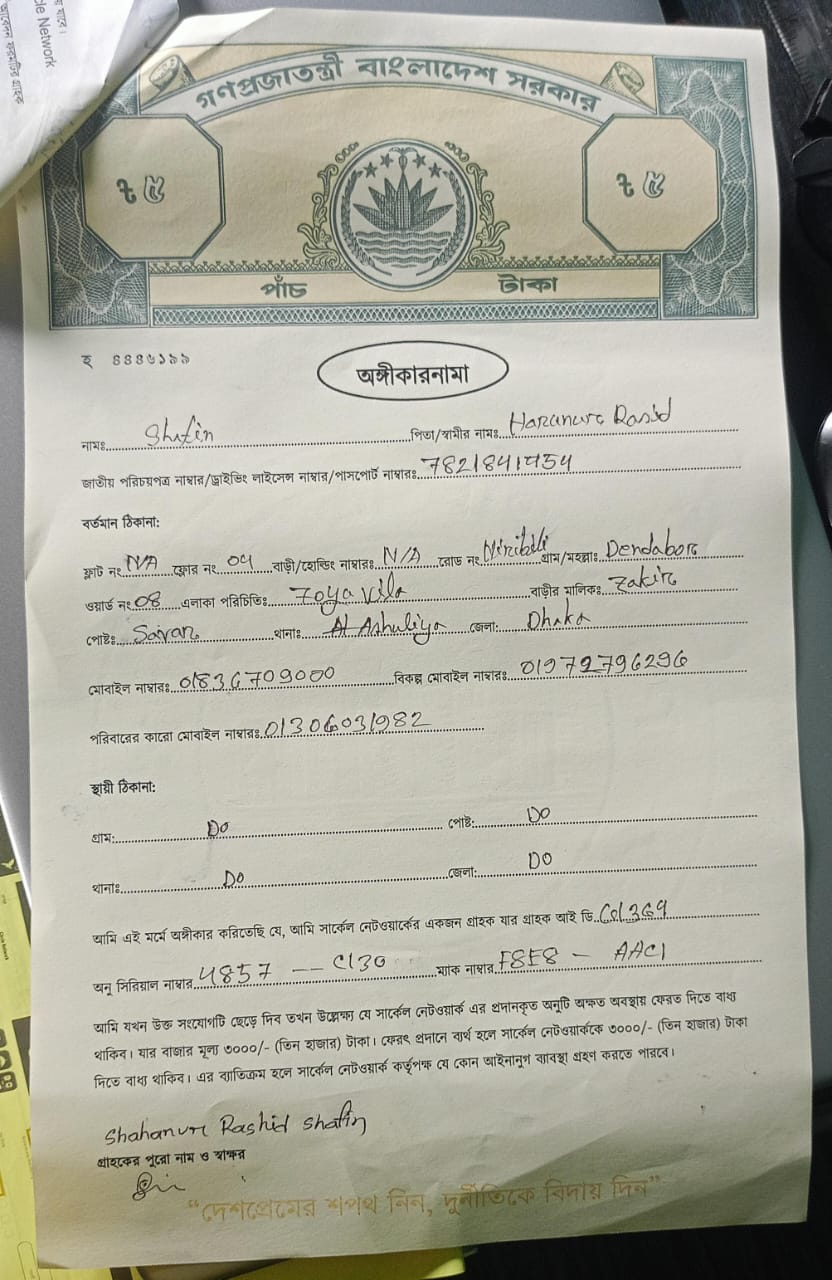 য় যাবে।
cle Network
আবেদন ফরমটির গ্রাহক
গণপ্রজাতন্ত্রী বাংলাদেশ সরকার
৳ ৫ ৳ ৫
পাঁচ টাকা
হ ৪৪৪৬১৯৯
অঙ্গীকারনামা
নামঃ Shafin পিতা/স্বামীর নামঃ Harunurc Rasid
জাতীয় পরিচয়পত্র নাম্বার/ড্রাইভিং লাইসেন্স নাম্বার/পাসপোর্ট নাম্বারঃ 7821841454
বর্তমান ঠিকানা:
ফ্লাট নং N/A ফ্লোর নং 04 বাড়ী/হোল্ডিং নাম্বারঃ N/A রোড নং Niribili গ্রাম/মহল্লাঃ Dendaborc
ওয়ার্ড নং 08 এলাকা পরিচিতিঃ Zoya Vila বাড়ীর মালিকঃ Zakirc
পোষ্টঃ Savarc থানাঃ Ashuliya জেলা: Dhaka
মোবাইল নাম্বারঃ 01836709000 বিকল্প মোবাইল নাম্বারঃ 01979796296
পরিবারের কারো মোবাইল নাম্বারঃ 01306031982
স্থায়ী ঠিকানা:
গ্রাম: Do পোষ্ট: Do
থানাঃ Do জেলা: Do
আমি এই মর্মে অঙ্গীকার করিতেছি যে, আমি সার্কেল নেটওয়ার্কের একজন গ্রাহক যার গ্রাহক আই ডি. Col369
অনু সিরিয়াল নাম্বার 4857 -- C130 ম্যাক নাম্বার F8E8 - AAC1
আমি যখন উক্ত সংযোগটি ছেড়ে দিব তখন উল্লেক্ষ্য যে সার্কেল নেটওয়ার্ক এর প্রদানকৃত অনুটি অক্ষত অবস্থায় ফেরত দিতে বাধ্য
থাকিব। যার বাজার মূল্য ৩০০০/- (তিন হাজার) টাকা। ফেরৎ প্রদানে ব্যর্থ হলে সার্কেল নেটওয়ার্ককে ৩০০০/- (তিন হাজার) টাকা
দিতে বাধ্য থাকিব। এর ব্যাতিক্রম হলে সার্কেল নেটওয়ার্ক কর্তৃপক্ষ যে কোন আইনানুগ ব্যাবস্থা গ্রহণ করতে পারবে।
Shahanurc Rashid Shafin
গ্রাহকের পুরো নাম ও স্বাক্ষর
“দেশপ্রেমের শপথ নিন, দুর্নীতিকে বিদায় দিন”